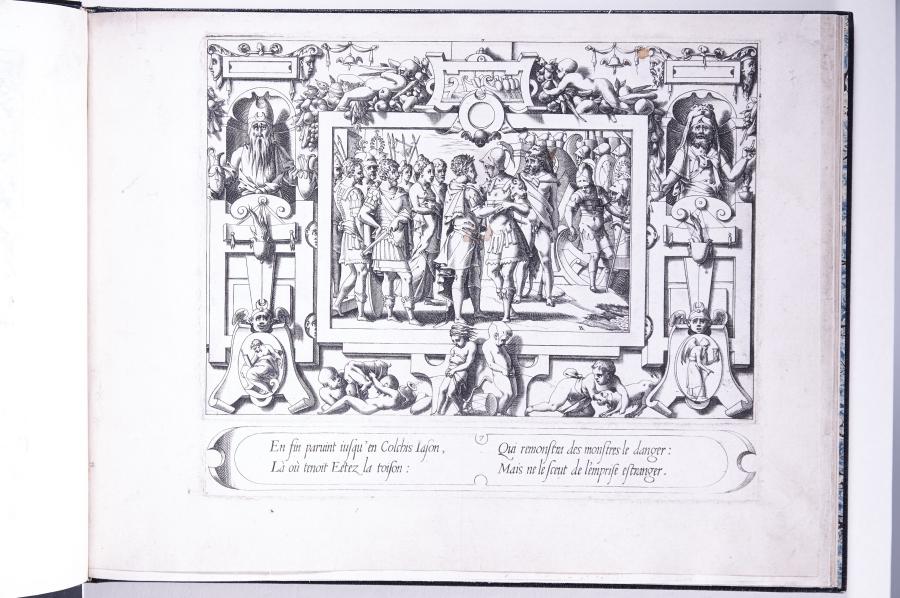 7
En fin paruint iusqu'en Colchis Iason,
Là où tenoit Eetez la toison :
Qui remonstra des monstres le danger :
Mais ne le sceut de l'emprise estranger.